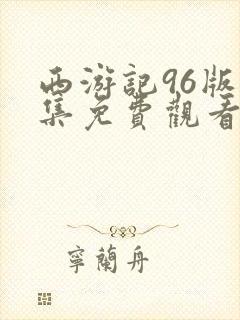 西游記96版
集免費觀看
寧蘭舟